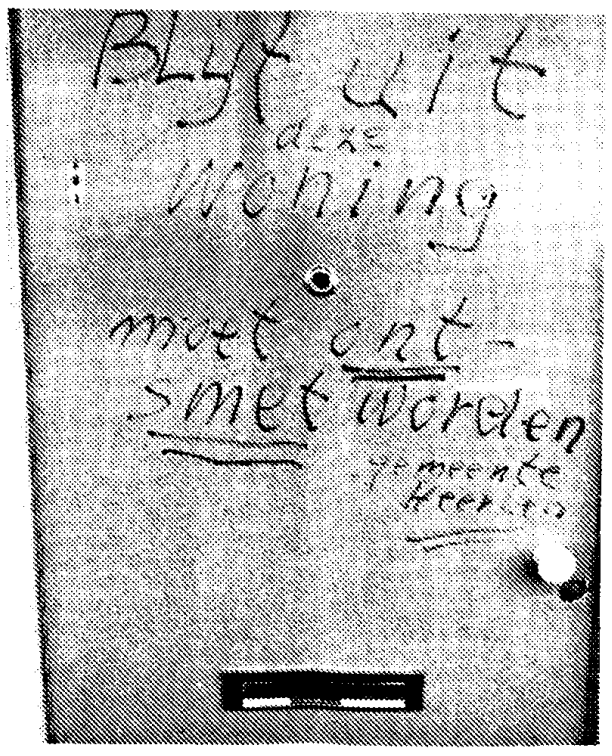 BLijf uit
deze
woning
moet ont-
smet worden
gemeente
Heerlen